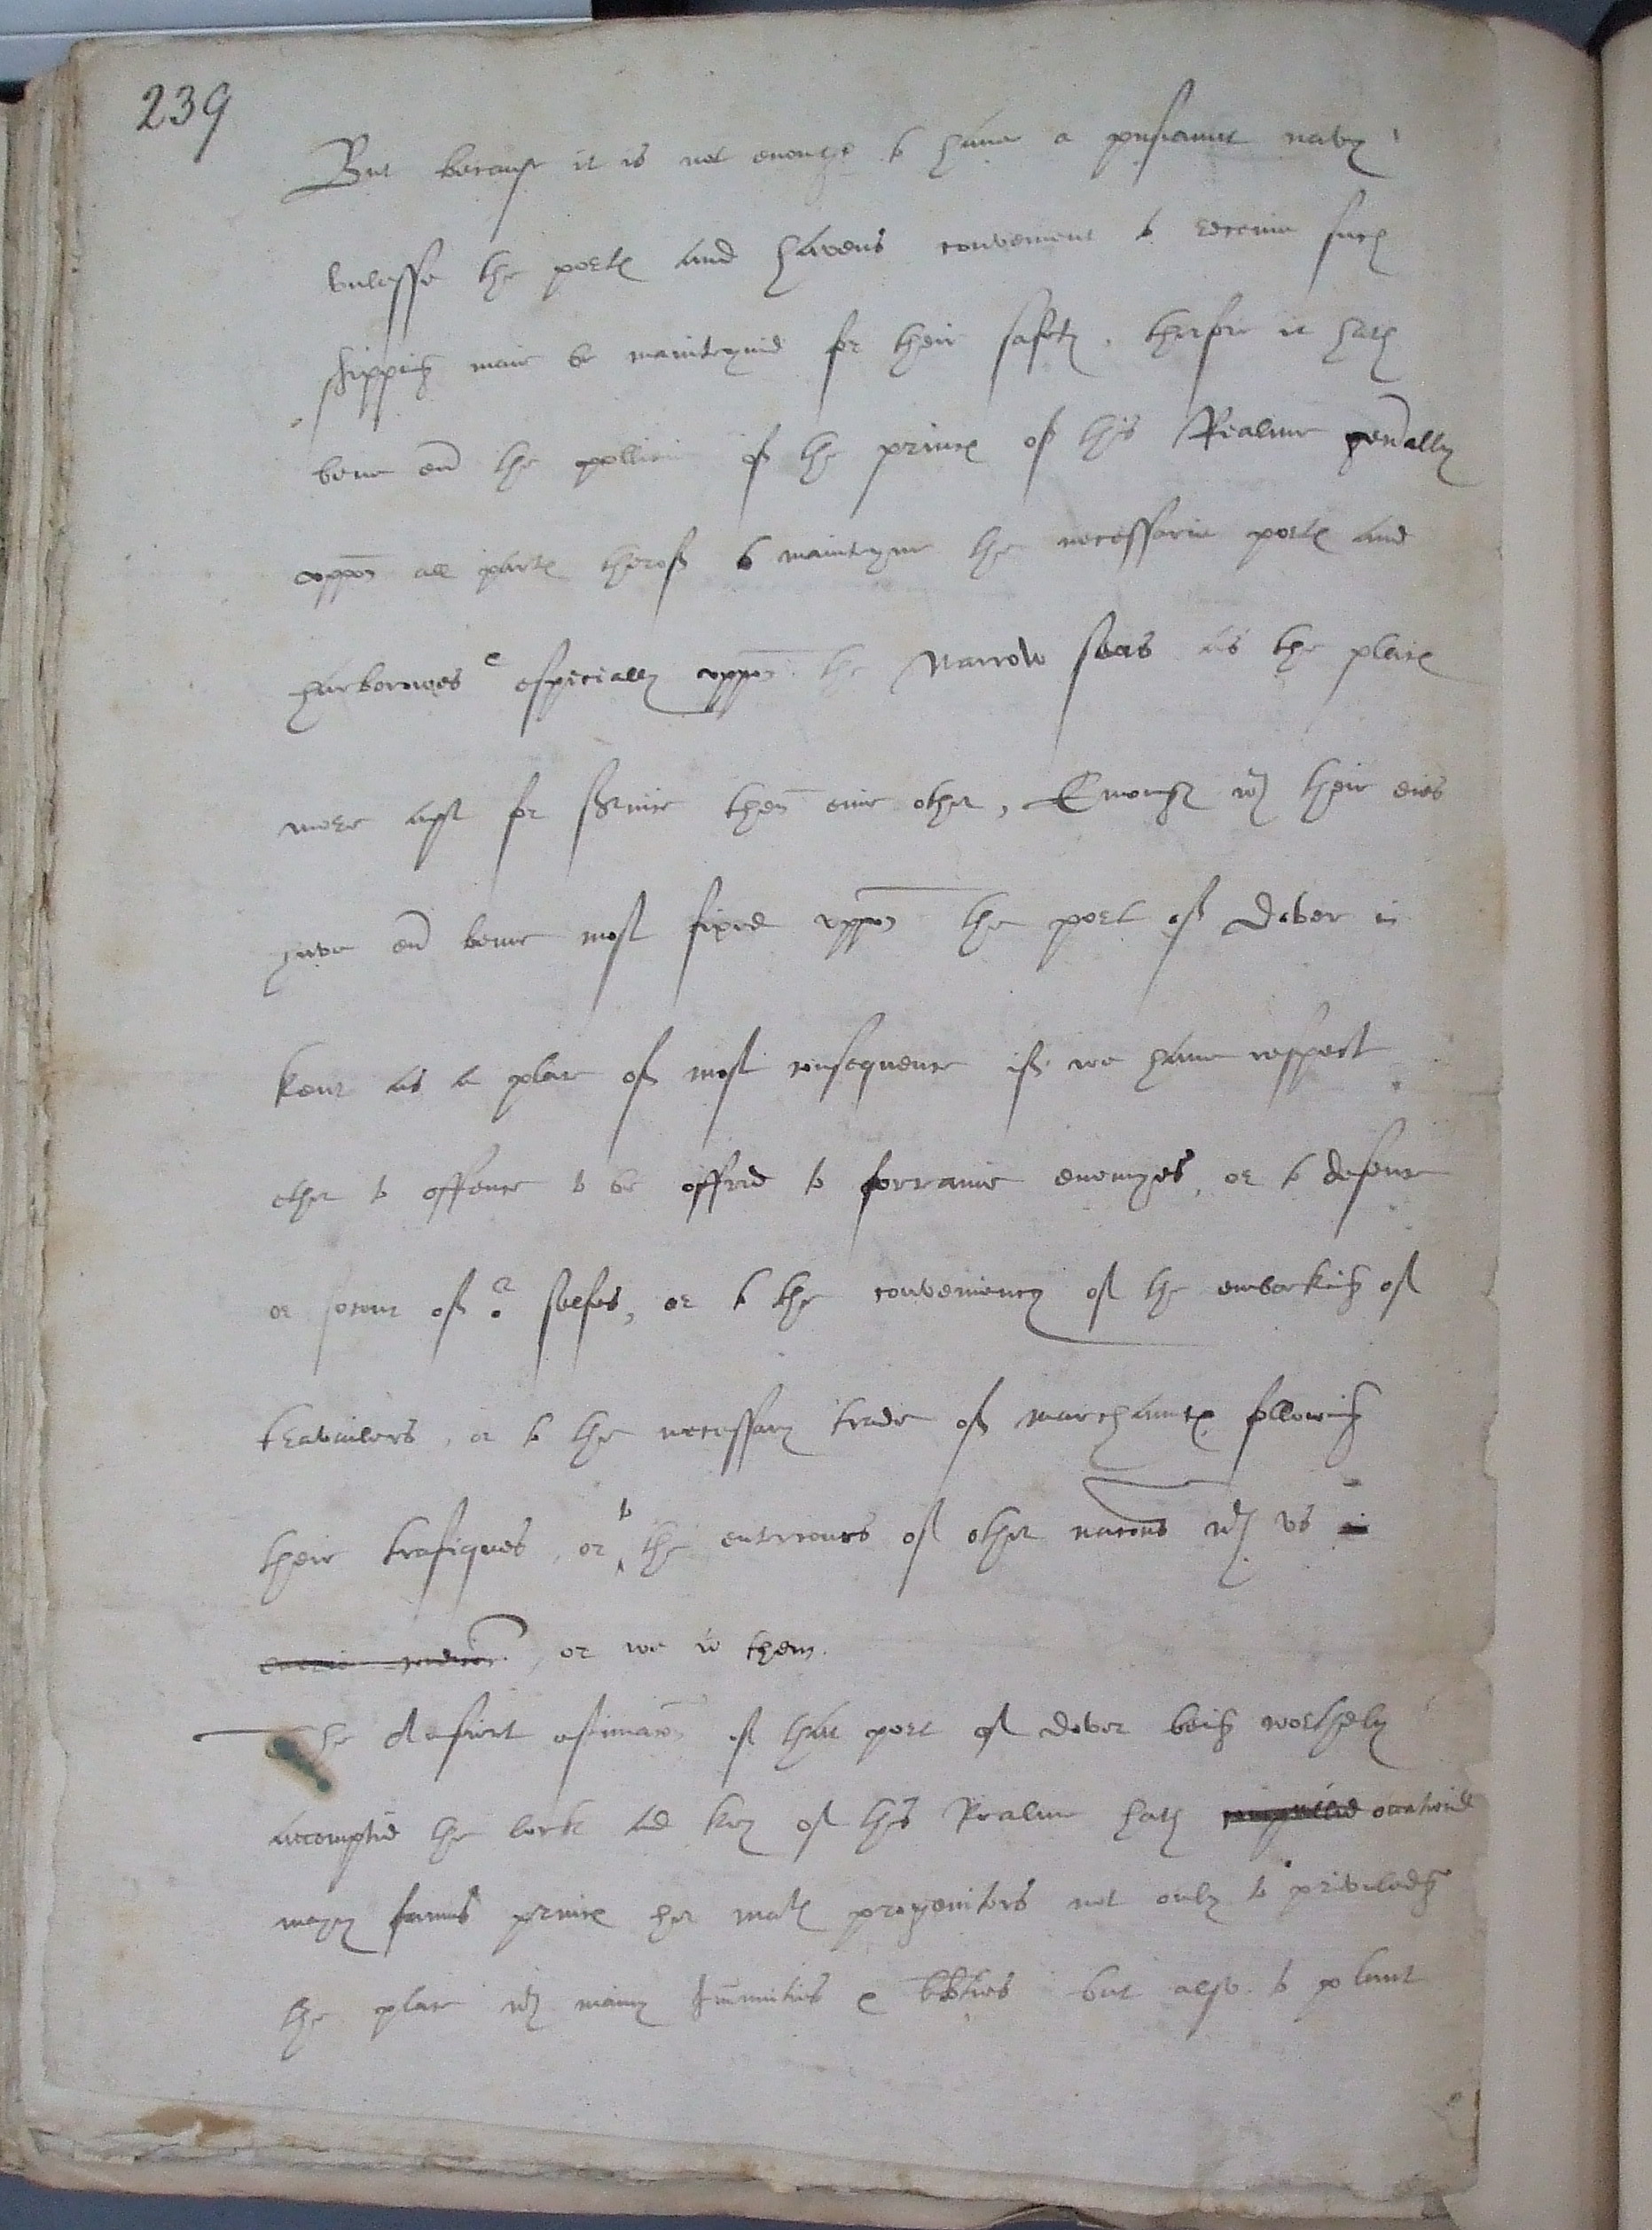 239
But because it is not enoughe to haue a puisaunt navy
vnlesse the portes and havens convenient to receiue such
shipping maie be maintaynid for their safety, therfore it hath
bene euer the pollicie of the princes of this Realme generally
vppon all partes therof to maintayne the necessarie portes and
harborowes & especially vppon the Narrow seas as the places
more apt for seruice then anie other, Emongst wch their eies
have euer bene most fixed vppon the port of Dover in
Kent as a place of most consequence if we haue respect
ether to offence to be offred to forraine enemyes, or to defence
or socour of or selfes, or to the conveniency of the embarking of
travailers, or to the necessary trade of marchauntes following
their trafiques, or to the entrcours of other nacons wth vs in
or we wth them.
The estimacon of that port of Dover being worthely
accomptid the lock and key of this Realme hath compellid occationid
many famous princes her maties progenitors not only to priviledg
the place wth many Immunities & liberties but also to plant